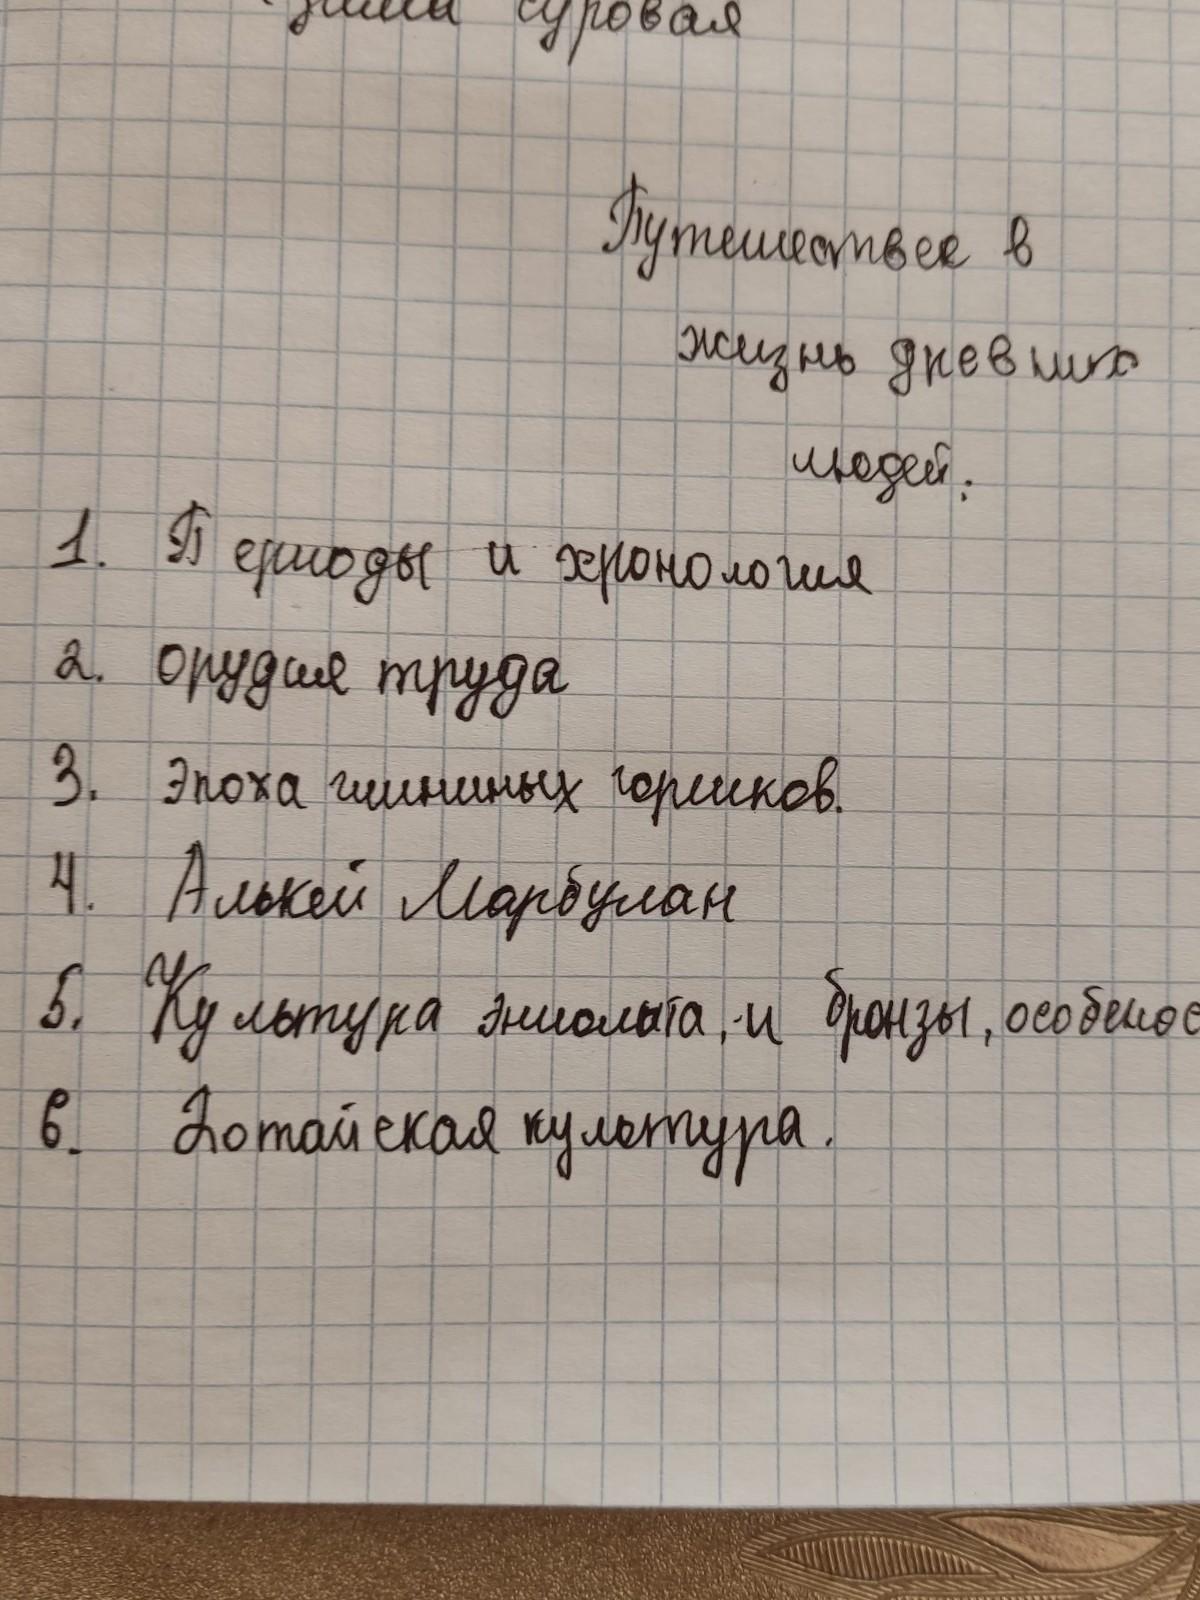 зима суровая
Путешествее в
жизнь дневних
людей.
1. Периоды и хронология
2. орудия труда
3. эпоха глининых горшков.
4. Алькей Марбулан
5. Культура эниолита, и бронзы, особенос
6. Ботайская культура.